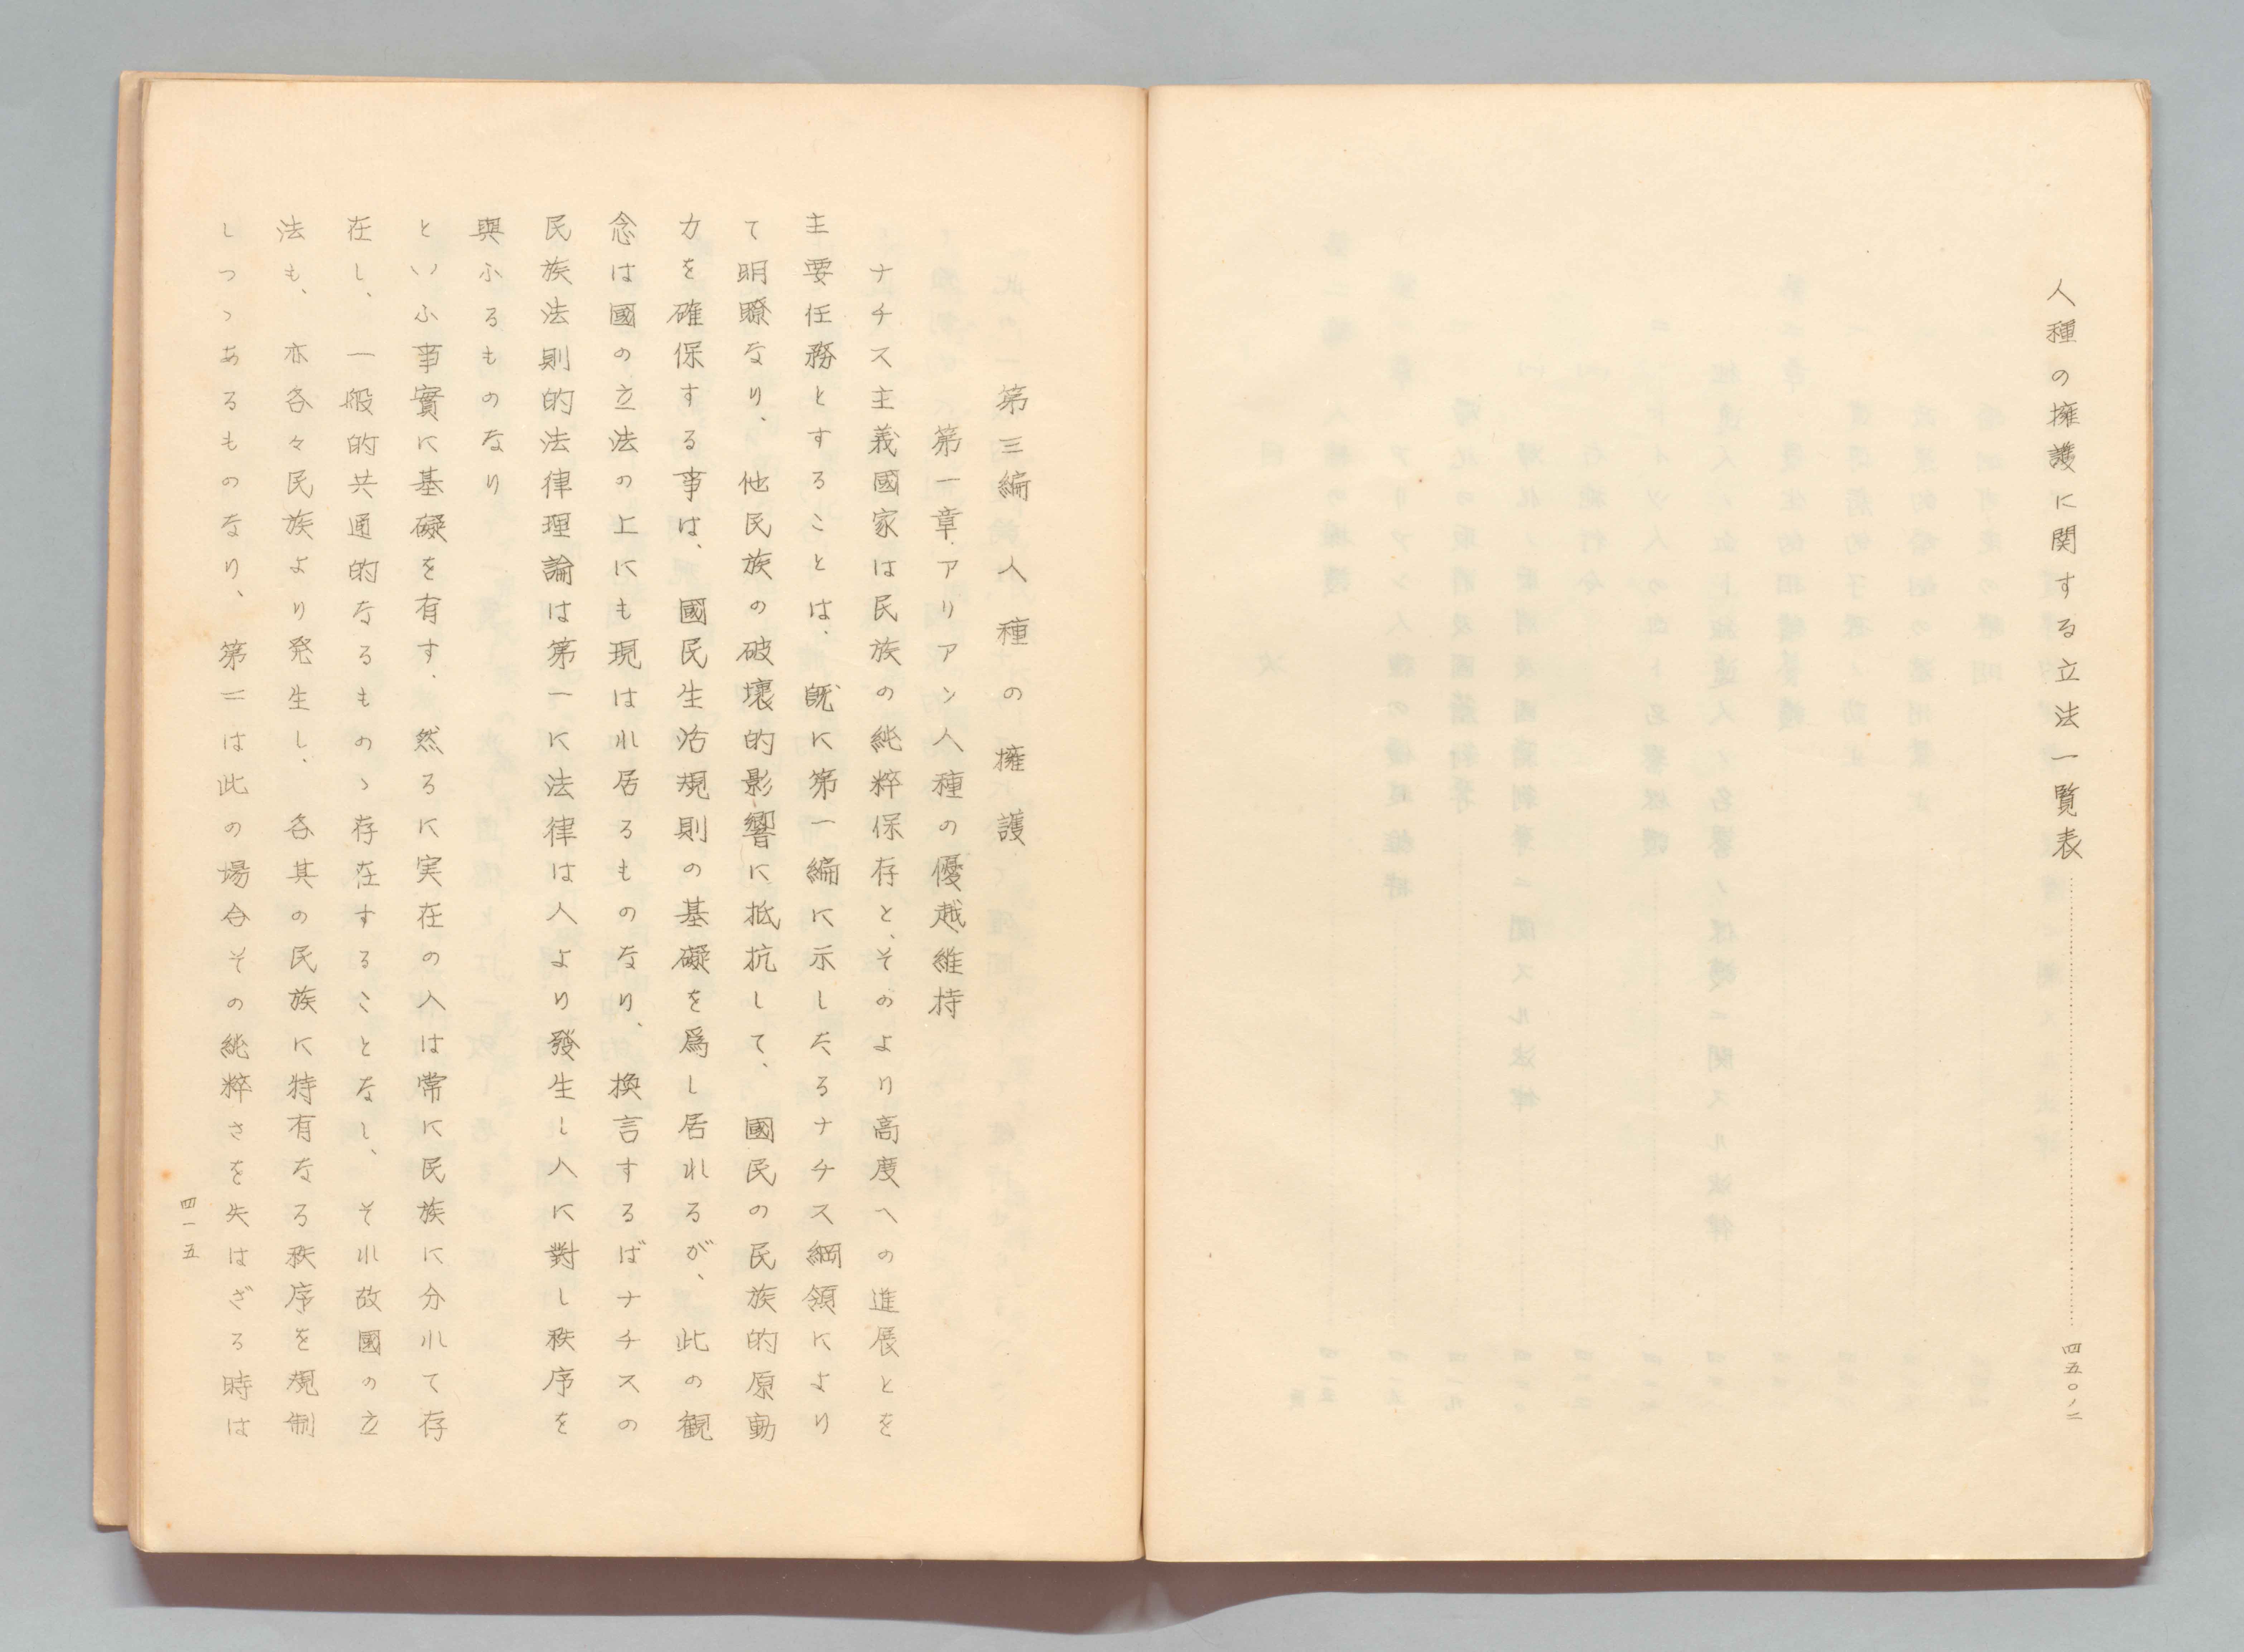 人種の擁護に関する立法一覧表……………………四五〇ノ二
第三編 人種の擁護
第一章 アリアン人種の優越維持
ナチス主義國家は民族の純粹保存と、そのより高度への進展とを
主要任務とすることは、既に第一編に示したるナチス綱領により
て明瞭なり、他民族の破壞的影響に抵抗して、國民の民族的原動
力を確保する事は、國民生活規則の基礎を爲し居れるが、此の観
念は國の立法の上にも現はれ居るものなり、換言するばナチスの
民族法則的法律理論は第一に法律は人より發生し人に對し秩序を
與ふるものなり
といふ事實に基礎を有す、然るに実在の人は常に民族に分れて存
在し、一般的共通的なるものゝ存在することなし、それ故國の立
法も、亦各々民族より発生し、各其の民族に特有なる秩序を規制
しつゝあるものなり、第二は此の場合その純粹さを失はざる時は
四一五